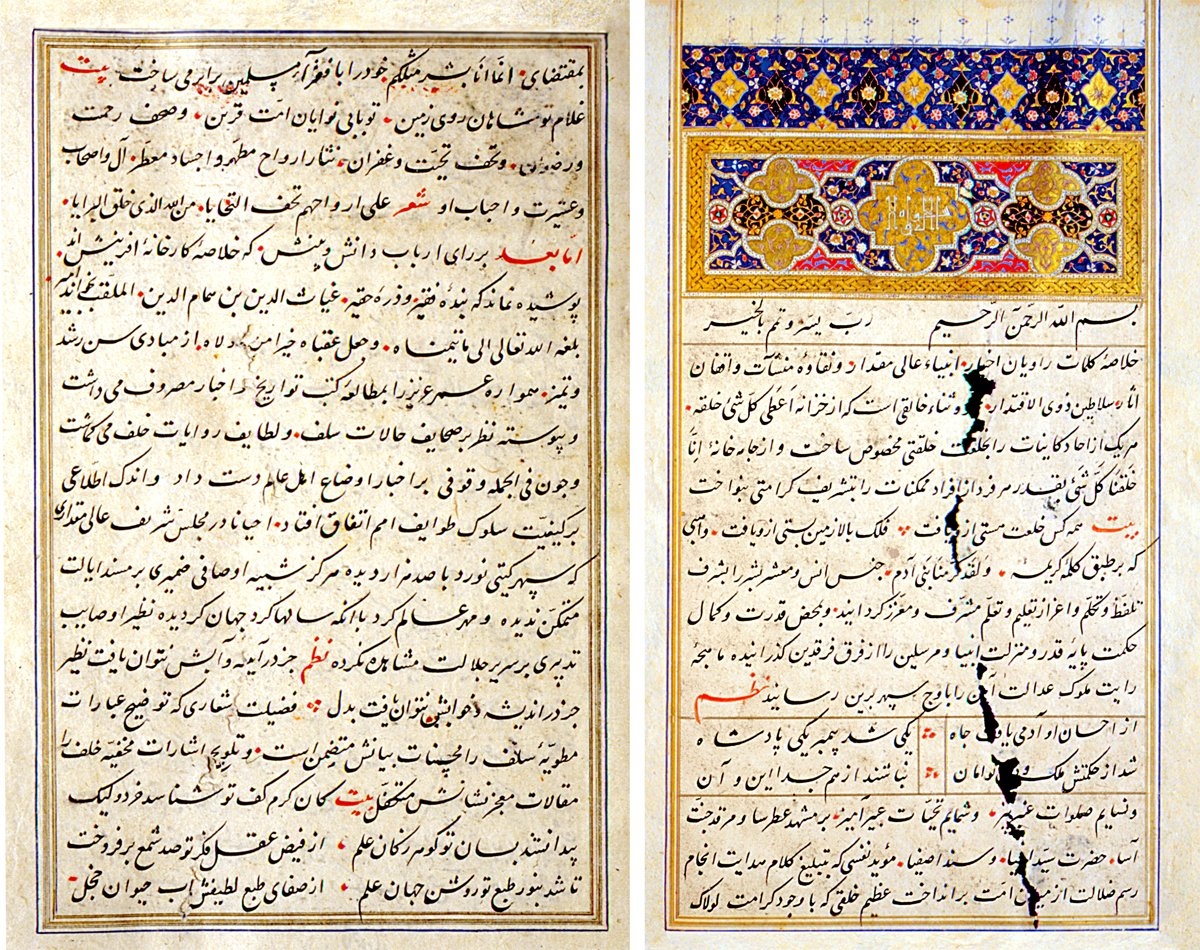 بسم الله الرحمن الرحیم رب یسر و تمم بالخیر
خلاصهٔ کلمات راویان اخبار انبیاء عالی مقدار و نقاوهٔ منشآت واقفان
آثار سلاطین ذوی الاقتدار وثناء خالقی است که از خزانهٔ اعطی کل شئ خلقه
هریک از احاد کاینات را بخلعت خلقتی مخصوص ساخت و از جامه خانهٔ انا
خلقنا کل شئ بقدر هر فرد از افراد ممکنات را بتشریف کرامتی بنواخت
بیت همه کس خلعت هستی ازو یافت فلک بالا زمین پستی ازو یافت واهبی
که بر طبق کلمهٔ کریمه ولقد کرمنا بنی آدم جنس انس و معشر بشر را بشرف
تلفظ و تکلم و اعزاز تعلیم و تعلم مشرف و معزز گردانید و بمحض قدرت و کمال
حکمت پایهٔ قدر و منزلت انبیا و مرسلین را از فرق فرقدین گذرانیده ماهچهٔ
رایت ملوک عدالت آیین را باوج سپهر برین رسانید نظم
از احسان او آدمی یافت جاه یکی شد پیمبر یکی پادشاه
شد از حکمتش ملک و توامان نباشند از هم جدا این و آن
و نسایم صلوات عنبربیز و شمایم تحیات عبیرآمیز بر مشهد عطرسا و مرقد جنت
آسا حضرت سید انبیا و سند اصفیا مؤید نفسی که بتبلیغ کلام هدایت انجام
رسم ضلالت از میان امت برانداخت عظیم خلقی که با وجود کرامت لولاک
بمقتضای انما انا بشر مثلکم خود را با فقرا مسلمین برابر می ساخت بیت
غلام تو شاهان روی زمین تو با بی نوایان امت قرین و صحف رحمت
و رضوان و تحف تحیت و غفران نثار ارواح مطهر و اجساد معطر آل و اصحاب
و عشیرت و احباب او شعر علی ارواحهم تحف التحایا من الله الذی خلق البرایا
اما بعد بر رای ارباب دانش و بینش که خلاصهٔ کارخانهٔ آفرینش اند
پوشیده نماند که بندهٔ فقیر و ذره حقیر غیاث الدین بن همام الدین الملقب بخواندامیر
بلغه الله تعالی الی ما یتمناه و جعل عقباه خیرا من اولاه از مبادی سن رشد
و تمیز همواره عمر عزیز را بمطالعهٔ کتب تواریخ و اخبار مصروف می داشت
و پیوسته نظر بر صحایف حالات سلف و لطایف روایات خلف می گماشت
و چون فی الجمله وقوفی بر اخبار اوضاع اهل عالم دست داد و اندک اطلاعی
بر کیفیت سلوک طوایف امم اتفاق افتاد احیانا در مجلس شریف عالی مقداری
که سپهر گیتی نورد با صد هزار دیده هرگز شبیه او صافی ضمیری بر مسند ایالت
متمکن ندیده و مهر عالم گرد با انکه سالها گرد جهان گردیده نظیر او صایب
تدبیری بر سریر جلالت مشاهده نکرده نظم جز در آینه و آبش نتوان یافت نظیر
جز در اندیشه و خوابش نتوان یافت بدل فضیلت شعاری که توضیح عبارات
مطویهٔ سلف را محسنات بیانش متضمن است و تلویح اشارات مخفیه خلف را
مقالات معجز نشانش متکفل بیت کان کرم کف تو شناسد خرد ولیک
پیدا نشد بسان تو گوهر ز کان علم از فیض عقل فکر تو صد شمع برفروخت
تا شد بنور طبع تو روشن جهان علم از صفای طبع لطیفش آب حیوان خجل